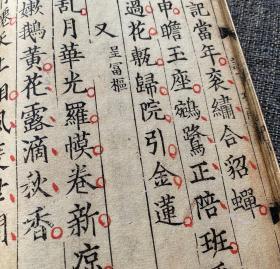 記當年袞繡合貂蟬
申瞻王座鵷鷺正陪班
過花甎歸院引金蓮
又
呈冨樞
乱月華光羅幙卷新凉
嫩鵝黃花露滴秋香